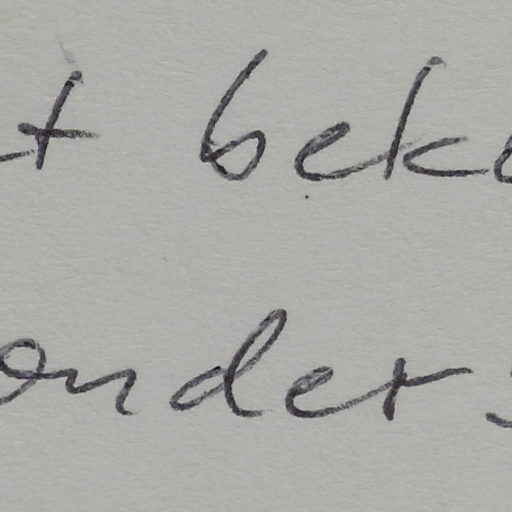 t beko
onders